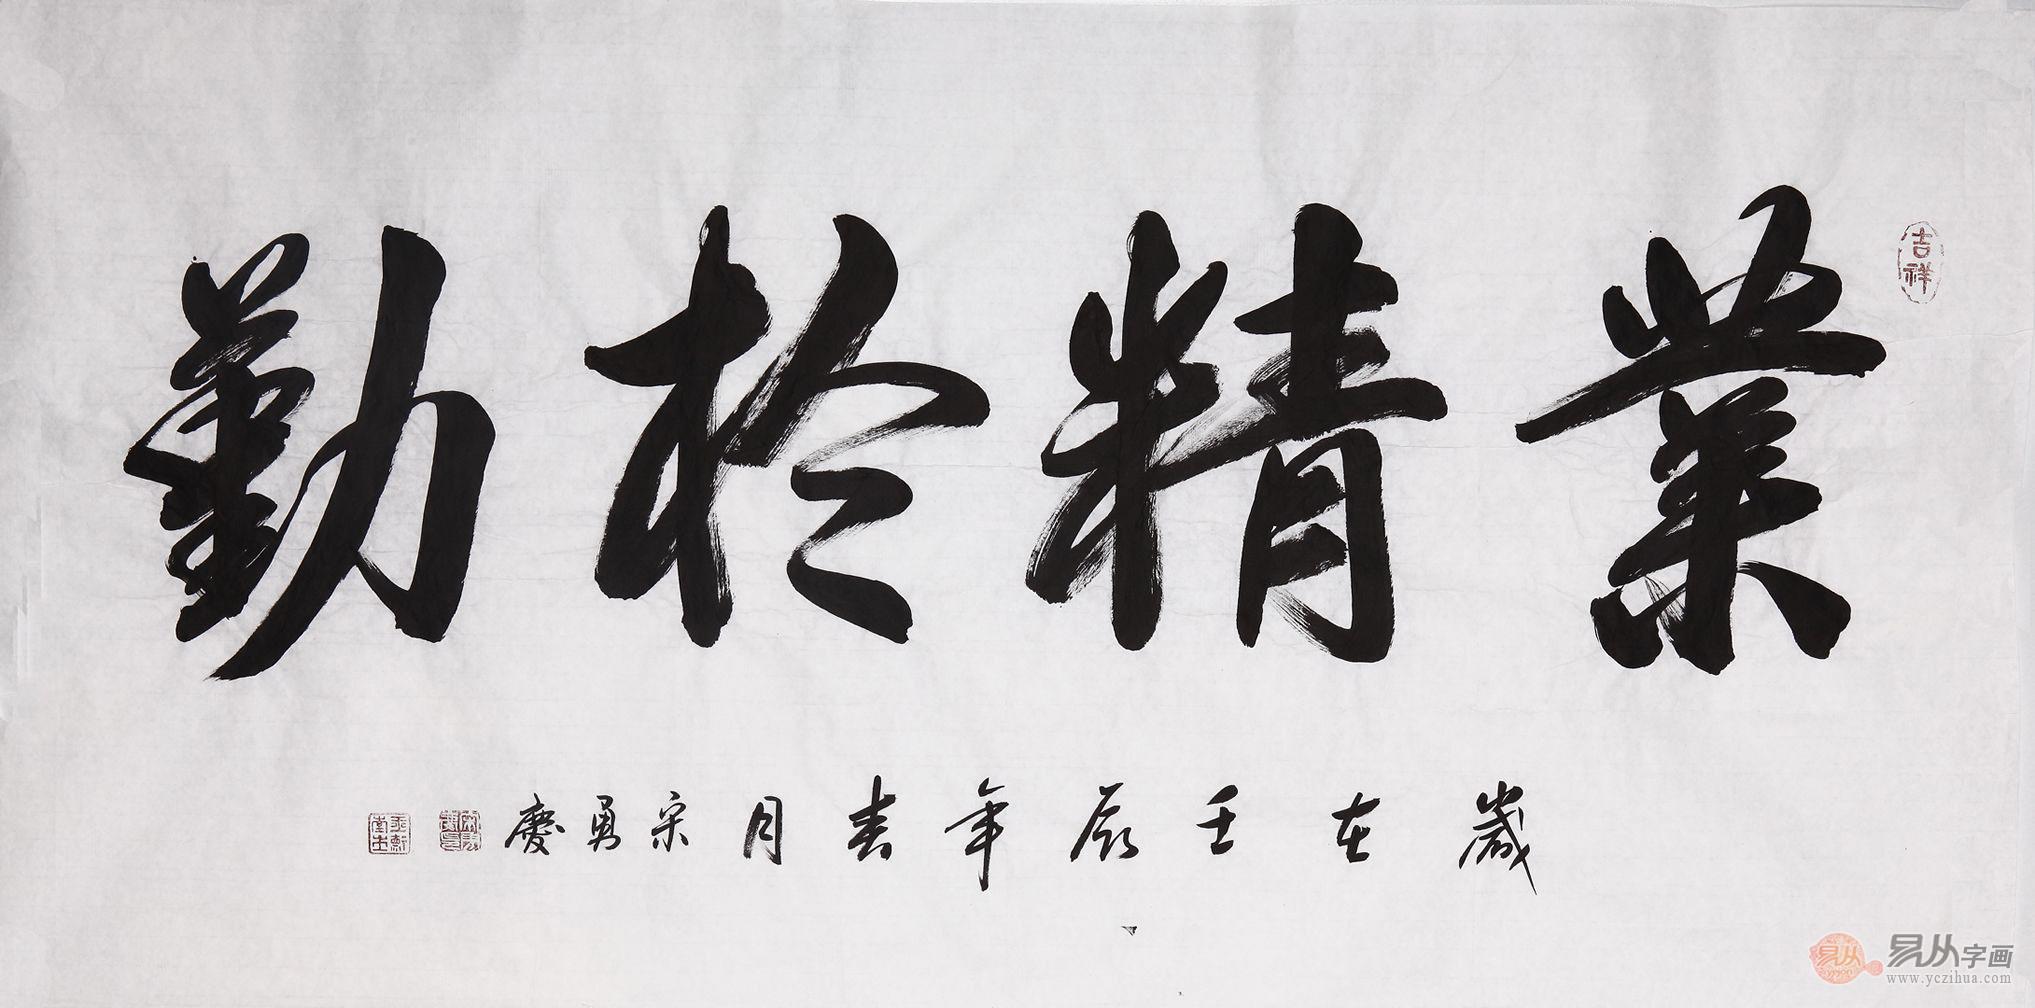 業精於勤
吉祥
歲在壬辰年春月宋勇慶
易从字画
www.yczihua.com